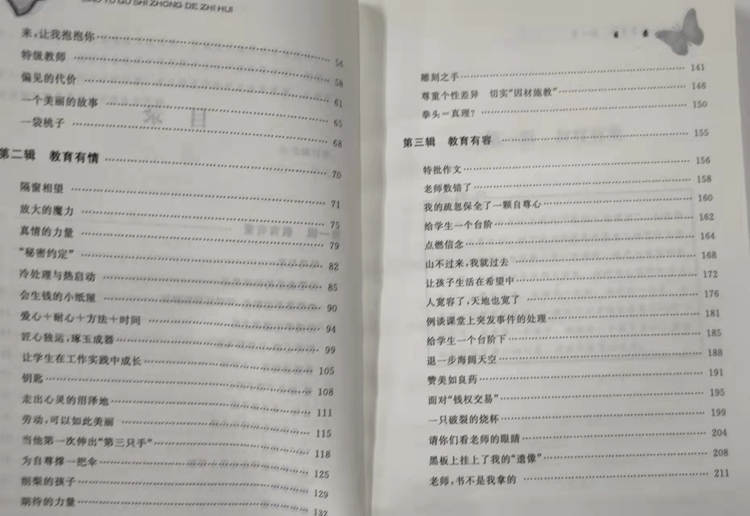 JIAO YU GU SHI ZHONG DE ZHI HUI
来,让我抱抱你 54
特级教师 58
偏见的代价 61
一个美丽的故事 65
一袋桃子 68
第二辑 教育有情 70
隔窗相望 71
放大的魔力 75
真情的力量 79
“秘密约定” 82
冷处理与热启动 85
会生钱的小纸篓 90
爱心+耐心+方法+时间 94
匠心独运,琢玉成器 99
让学生在工作实践中成长 105
钥匙 108
走出心灵的沼泽地 111
劳动,可以如此美丽 115
当他第一次伸出“第三只手” 118
为自尊撑一把伞 125
削梨的孩子 129
期待的力量 132
目录
雕刻之手 141
尊重个性差异 切实“因材施教” 146
拳头=真理? 150
第三辑 教育有容 155
特批作文 156
老师数错了 158
我的疏忽保全了一颗自尊心 160
给学生一个台阶 162
点燃信念 164
山不过来,我就过去 168
让孩子生活在希望中 172
人宽容了,天地也宽了 176
例谈课堂上突发事件的处理 181
给学生一个台阶下 185
退一步海阔天空 188
赞美如良药 191
面对“钱权交易” 195
一只破裂的烧杯 199
请你们看老师的眼睛 204
黑板上挂上了我的“遗像” 208
老师,书不是我拿的 211